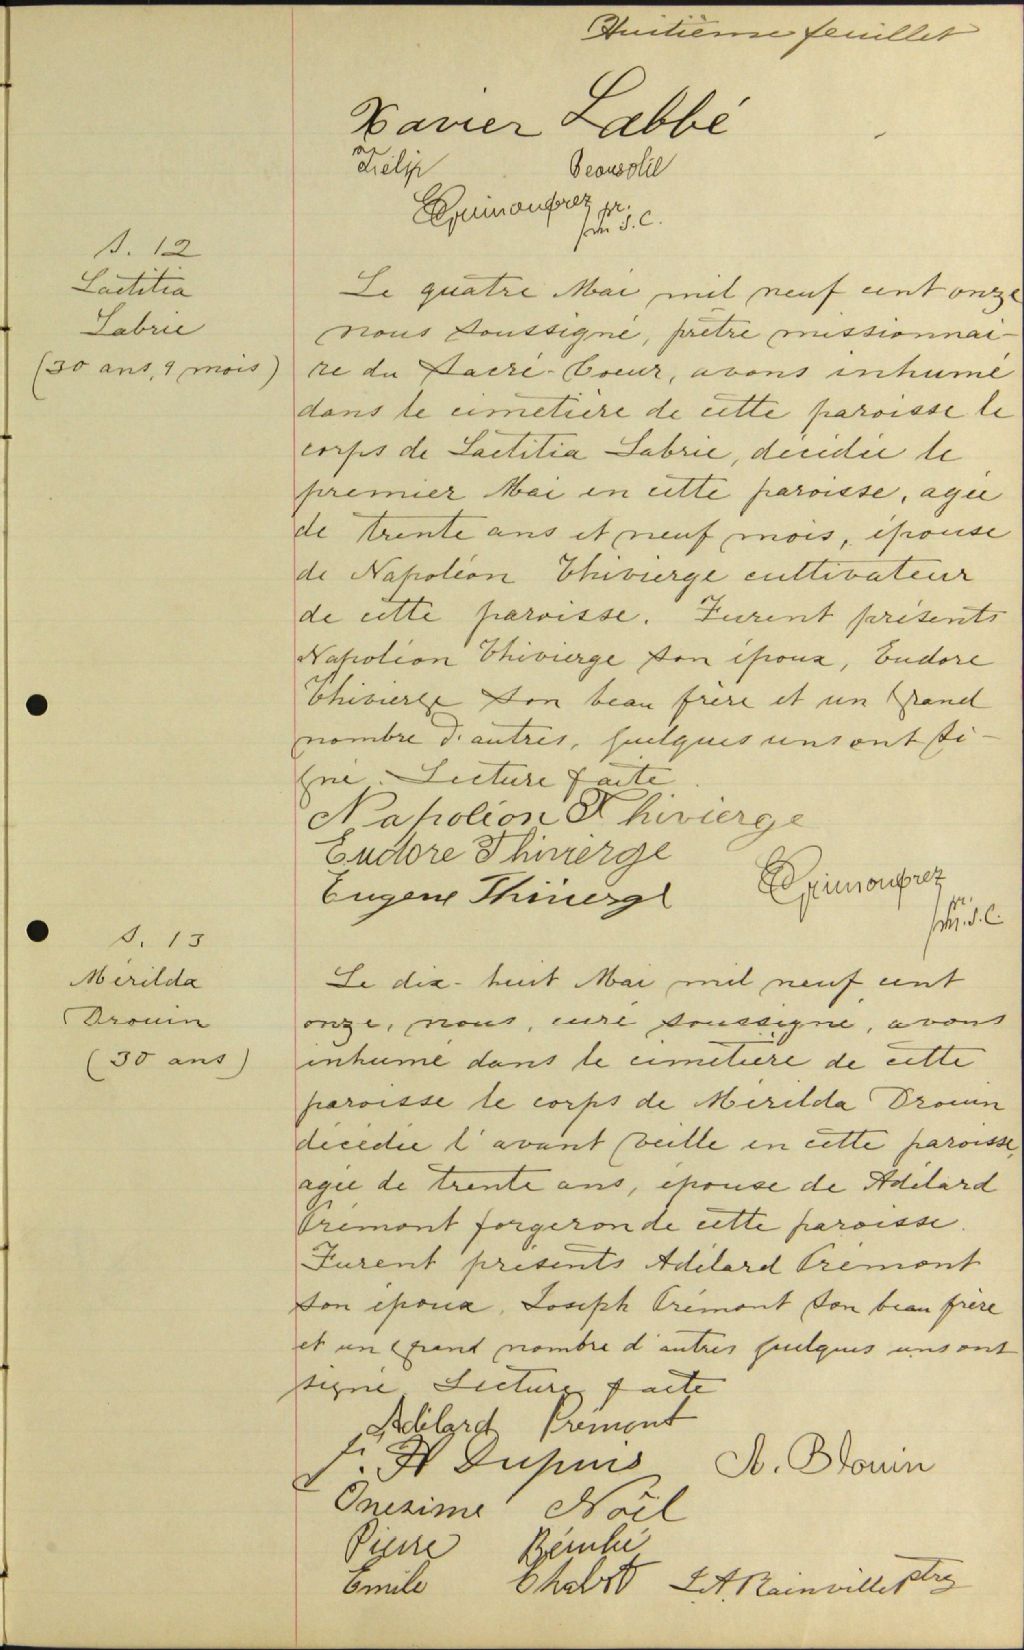 Huitième feuillet
Xavier Labbé
Félix Beausolil
E Grimonprez pr.
m. S. C.
S. 12
Laetitia
Labrie
(30 ans, 9 mois)
Le quatre Mai mil neuf cent onze
nous soussigné, prêtre missionnai-
re du Sacré-Coeur, avons inhumé
dans le cimetière de cette paroisse le
corps de Laetitia Labrie, décédée le
premier Mai en cette paroisse, agée
de trente ans et neuf mois, épouse
de Napoléon Thivierge cultivateur
de cette paroisse. Furent présents
Napoléon Thivierge son époux, Eudore
Thivierge son beau frère et un grand
nombre d'autres, quelques uns ont si-
gné. Lecture faite
Napoléon Thivierge
Eudore Thivierge
Eugene Thivierge
E Grimonprez
pr.
m. S. C.
S. 13
Mérilda
Drouin
(30 ans)
Le dix-huit Mai mil neuf cent
onze, nous, curé soussigné, avons
inhumé dans le cimetière de cette
paroisse le corps de Mérilda Drouin
décédée l'avant veille en cette paroisse,
agée de trente ans, épouse de Adélard
Prémont forgeron de cette paroisse.
Furent présents Adélard Prémont
son époux, Joseph Prémont son beau frère
et un grand nombre d'autres quelques uns ont
signé Lecture faite
Adélard Prémont
J. H Dupuis A. Blouin
Onezime Noël
Pierre Bérubé
Emile Chabot J. A. Rainville Ptre